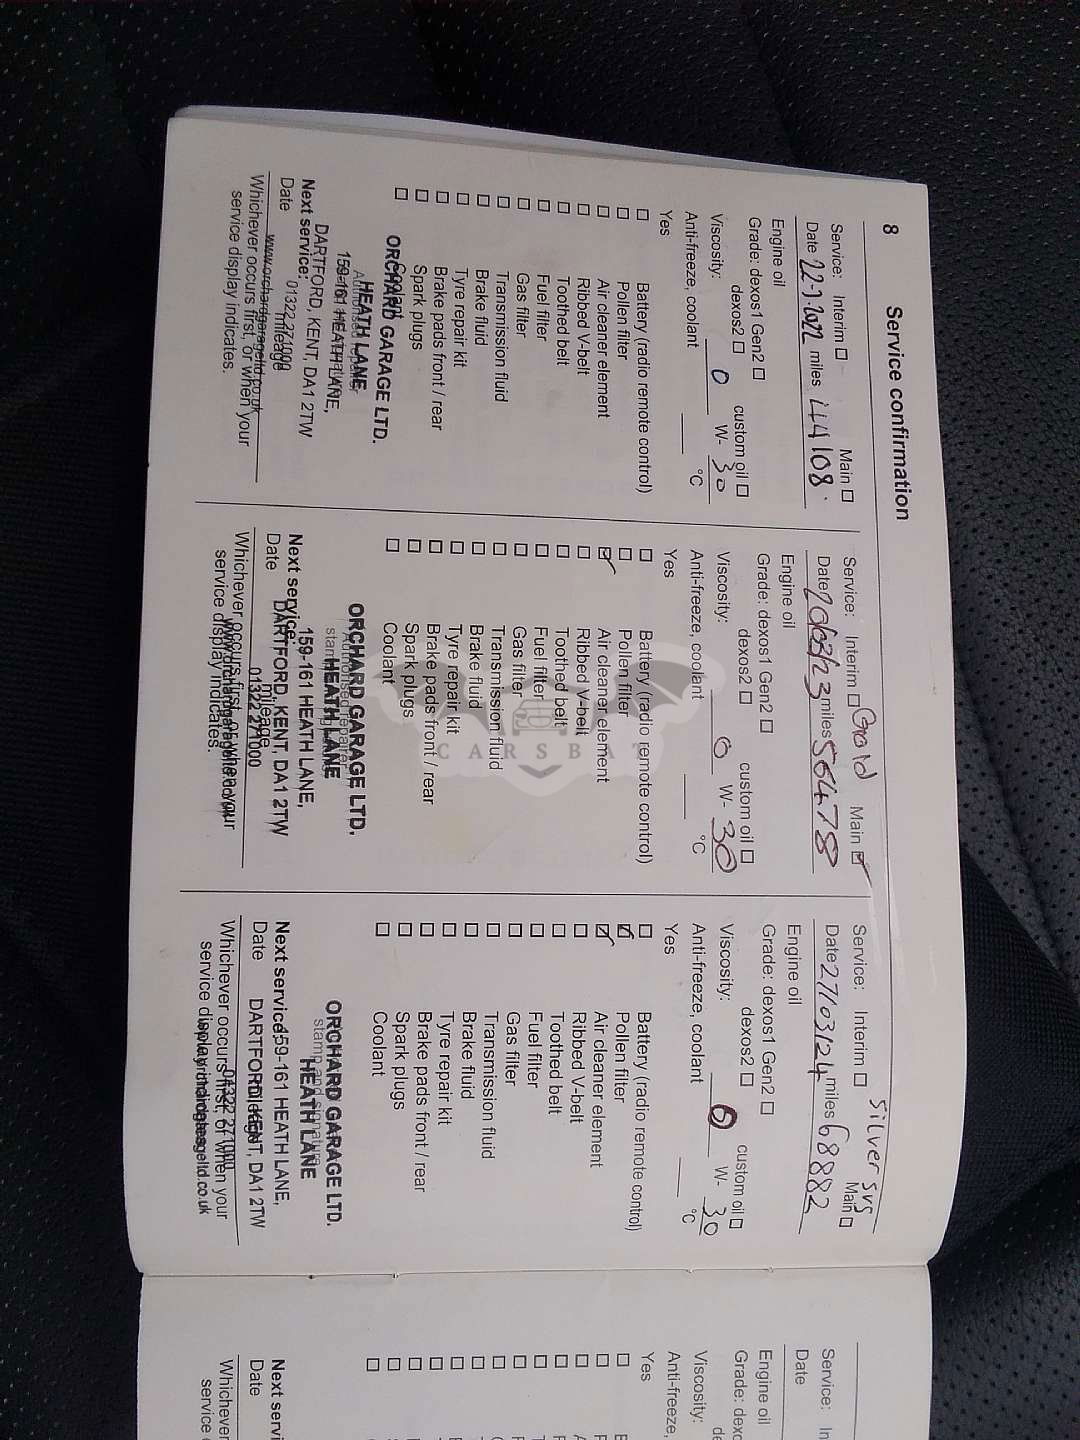 8 Service confirmation
Service: Interim ☐ Main ☐
Date 22-7-2022 miles 44108.
Engine oil
Grade: dexos1 Gen2 ☐ custom oil ☐
dexos2 ☐
Viscosity: 0 W- 30
Anti-freeze, coolant °C
Yes
☐ Battery (radio remote control)
☐ Pollen filter
☐ Air cleaner element
☐ Ribbed V-belt
☐ Toothed belt
☐ Fuel filter
☐ Gas filter
☐ Transmission fluid
☐ Brake fluid
☐ Tyre repair kit
☐ Brake pads front / rear
☐ Spark plugs
☐ Coolant
ORCHARD GARAGE LTD.
HEATH LANE
159-161 HEATH LANE,
DARTFORD, KENT, DA1 2TW
Next service:
01322 271000
Date mileage
www.orchardgarageltd.co.uk
Whichever occurs first, or when your
service display indicates.
Gold
Service: Interim ☐ Main ☑
Date miles 56478
Engine oil
Grade: dexos1 Gen2 ☐ custom oil ☐
dexos2 ☐
Viscosity: 0 W- 30
Anti-freeze, coolant °C
Yes
☐ Battery (radio remote control)
☐ Pollen filter
☑ Air cleaner element
☐ Ribbed V-belt
☐ Toothed belt
☐ Fuel filter
☐ Gas filter
☐ Transmission fluid
☐ Brake fluid
☐ Tyre repair kit
☐ Brake pads front / rear
☐ Spark plugs
☐ Coolant
ORCHARD GARAGE LTD.
Authorised repairer
HEATH LANE
159-161 HEATH LANE,
Next service:
DARTFORD, KENT, DA1 2TW
Date mileage
01322 271000
Whichever occurs first, or when your
service display indicates.
silver svs
Service: Interim ☐ Main ☐
Date 27/03/24 miles 68882
Engine oil
Grade: dexos1 Gen2 ☐ custom oil ☐
dexos2 ☐
Viscosity: 0 W- 30
Anti-freeze, coolant °C
Yes
☐ Battery (radio remote control)
☑ Pollen filter
☑ Air cleaner element
☐ Ribbed V-belt
☐ Toothed belt
☐ Fuel filter
☐ Gas filter
☐ Transmission fluid
☐ Brake fluid
☐ Tyre repair kit
☐ Brake pads front / rear
☐ Spark plugs
☐ Coolant
ORCHARD GARAGE LTD.
stamp and signature
HEATH LANE
159-161 HEATH LANE,
Next service:
DARTFORD, KENT, DA1 2TW
Date mileage
01322 271000
Whichever occurs first, or when your
service display indicates.
Service: In
Date
Engine oil
Grade: dexo
de
Viscosity:
Anti-freeze,
Yes
Next servi
Date
Whichever
service
CARSBAT